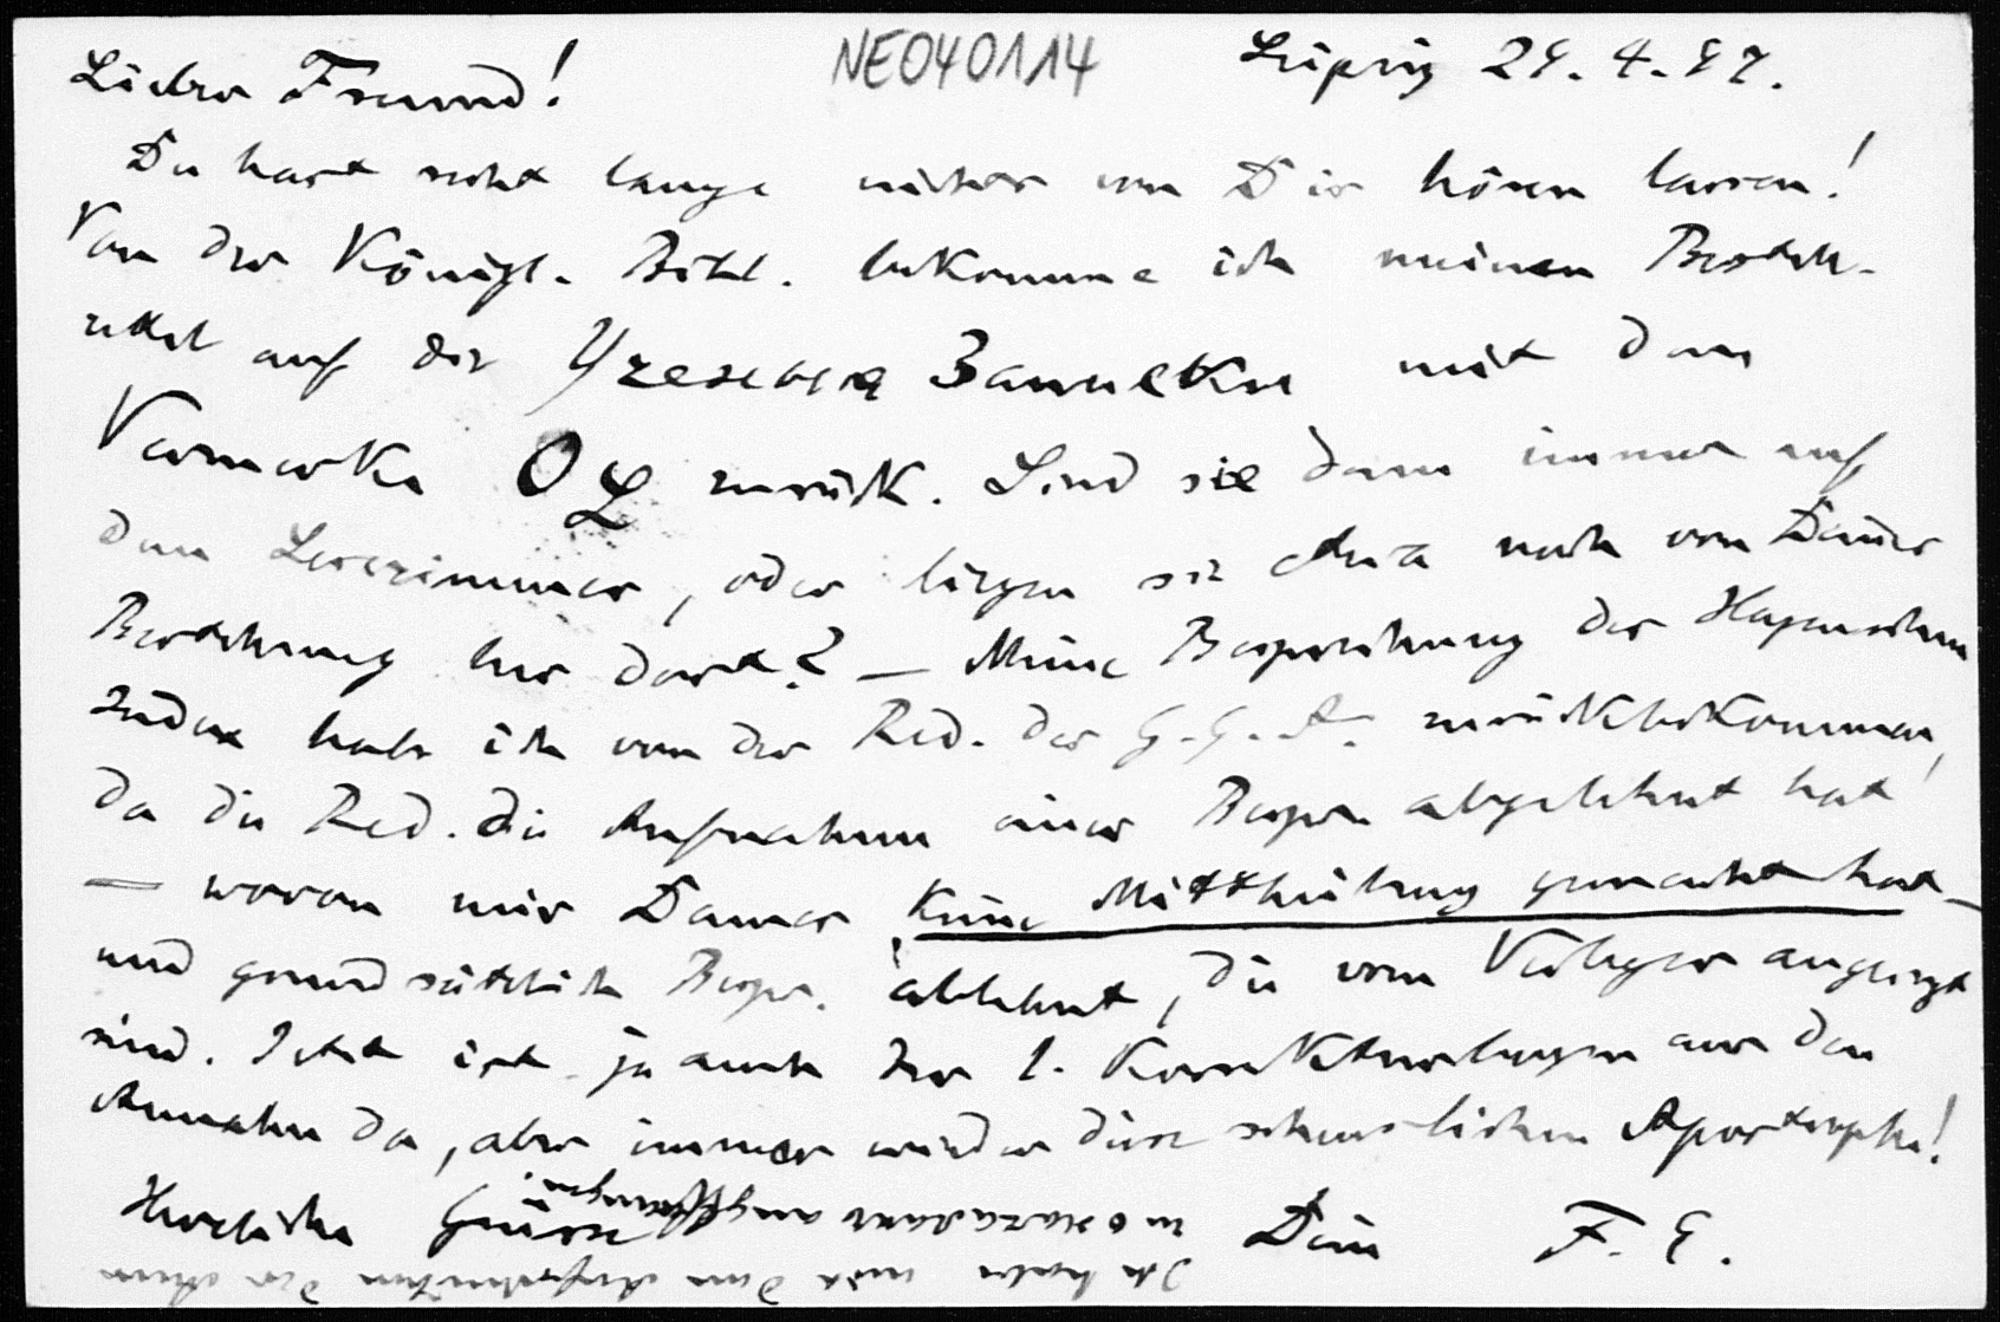 NE040114
Leipzig 29. 4. 87.
Lieber Freund!
Du hast recht lange nichts von Dir hören lassen!
Von der Königl. Bibl. bekomme ich meinen Bestell-
zettel auf die Ученыя Записки mit dem
Vermerke zurück. Sind sie denn immer auf
dem Lesezimmer, oder liegen sie etwa noch von
Bestellung her dort? – Meine Besprechung des
Index habe ich von der Red. der G. G. A. zurückbekommen,
da die Red. die Aufnahme einer Bespr. abgelehnt hat
– wovon mir keine Mittheilung gemacht hat –
und grundsätzlich Bespr. ablehnt, die vom Verleger angeregt
sind. Jetzt ist ja auch der 1. Korrekturbogen aus den
da, aber immer wieder diese scheusslichen Apostrophe!
Herzliche Grüsse Dein F. E.
Ich habe mit dem Aufschneiden der
angefangen.